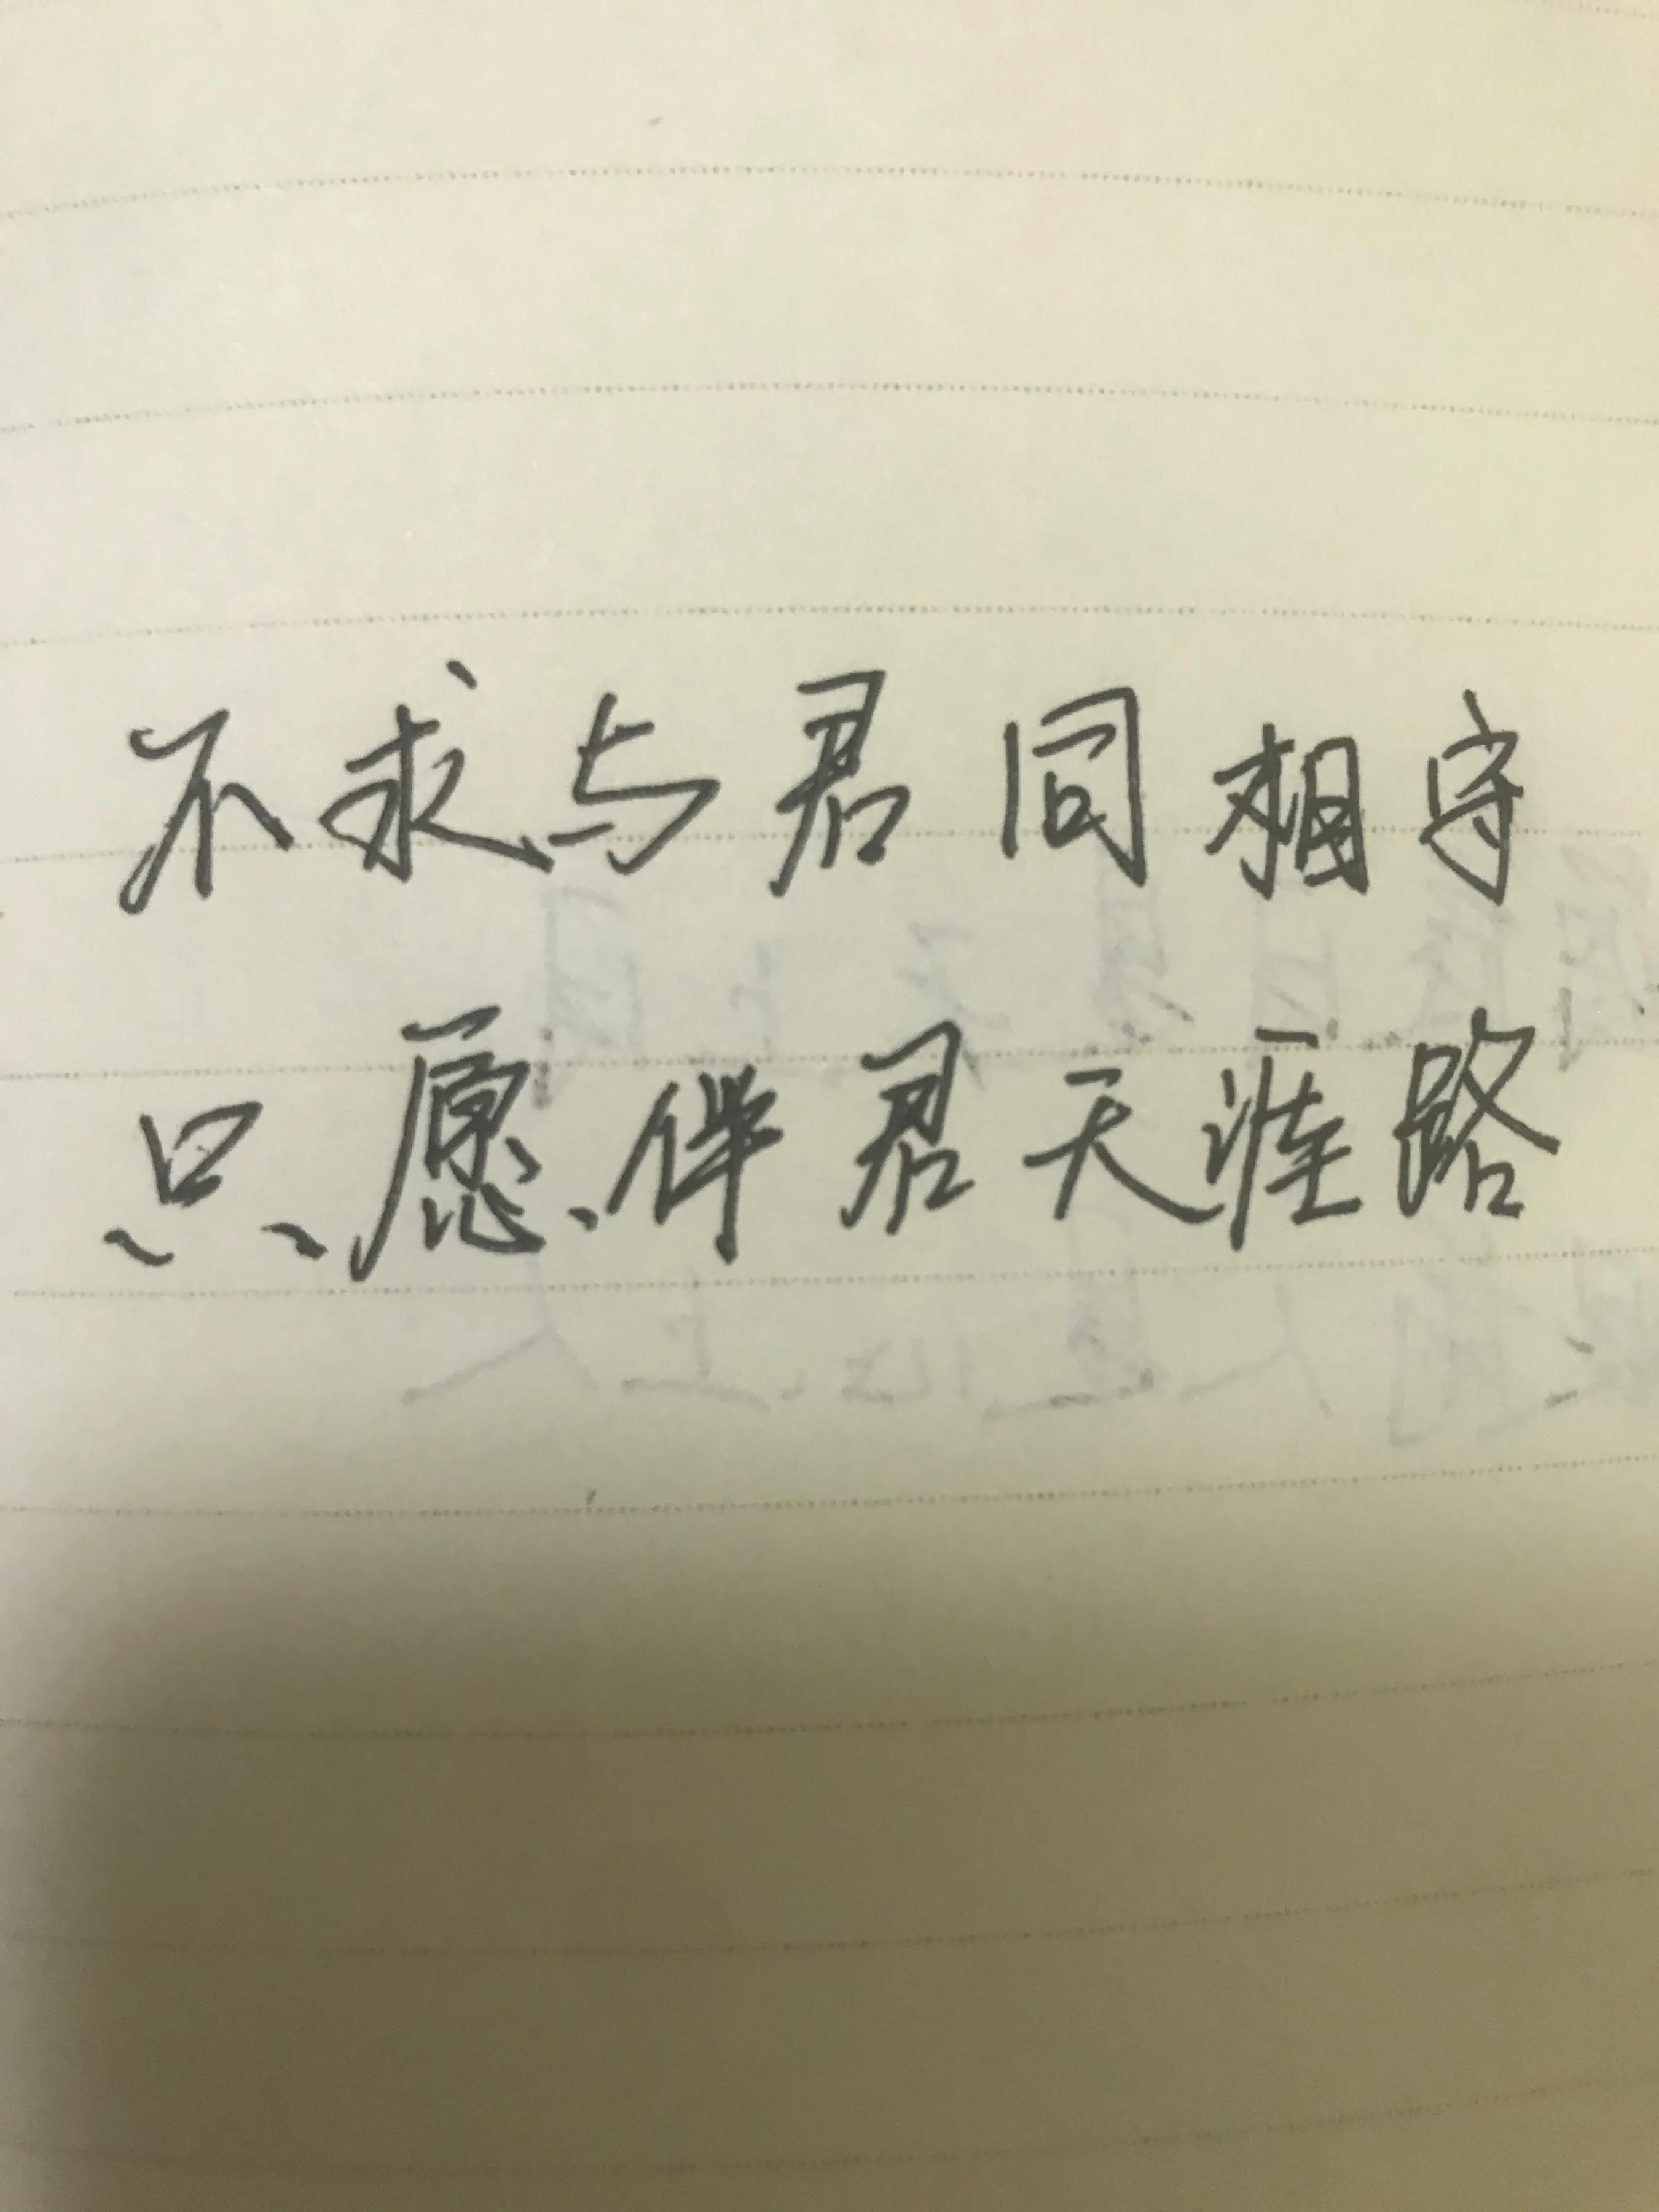 不求与君同相守
只愿伴君天涯路